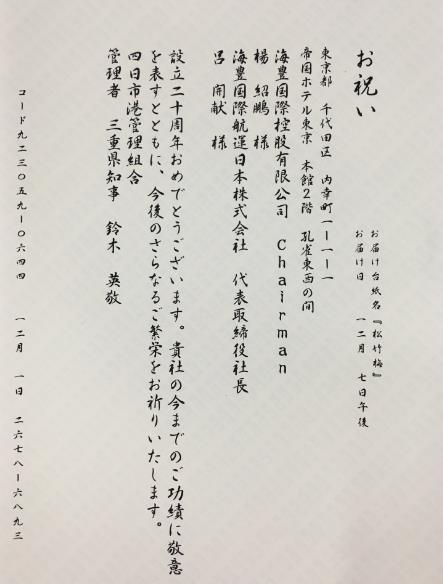 お祝い
お届け台紙名『松竹梅』
お届け日　一二月　七日午後
東京都　千代田区　内幸町一ー一ー一
帝国ホテル東京　本館2階　孔雀東西の間
海豊国際控股有限公司　Chairman
楊　紹鵬　様
海豊国際航運日本株式会社　代表取締役社長
呂　開献　様
設立二十周年おめでとうございます。貴社の今までのご功績に敬意
を表すとともに、今後のさらなるご繁栄をお祈りいたします。
四日市港管理組合
管理者　三重県知事　鈴木　英敬
コード九二三〇五九ー〇六四四　一二月　一日　二六七八ー六八九三